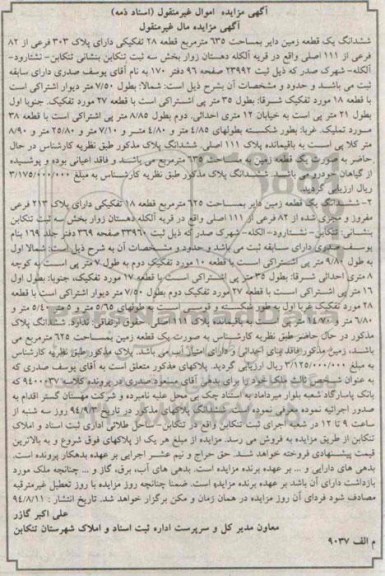 آگهی مزایده اموال غیرمنقول (اسناد ذمه)
آگهی مزایده مال غیرمنقول
ششدانگ یک قطعه زمین دایر بمساحت ۶۳۵ مترمربع قطعه ۲۸ تفکیکی دارای پلاک ۳۰۳ فرعی از ۸۲
فرعی از ۱۱۱ اصلی واقع در قریه آلکله دهستان زوار بخش سه ثبت تنکابن بنشانی تنکابن- نشتارود-
آلکله- شهرک صدر که ذیل ثبت ۲۳۹۹۲ صفحه ۹۶ دفتر ۱۷۰ به نام آقای یوسف صدری دارای سابقه
ثبت می باشد و حدود و مشخصات آن بشرح ذیل است: شمالا: بطول ۷/۵۰ متر دیوار اشتراکی است
با قطعه ۱۸ مورد تفکیک شرقا: بطول ۳۵ متر پی اشتراکی است با قطعه ۲۷ مورد تفکیک. جنوبا اول
بطول ۲۱ متر پی است به خیابان ۱۲ متری احداثی. دوم بطول ۸/۸۵ متر پی اشتراکی است با قطعه ۳۸
مورد تملیک. غربا: بطور شکسته بطولهای ۴/۸۵ متر و ۴/۸۰ متر و ۷/۱۰ متر و ۲۵/۸۰ متر و ۸/۹۰
متر کلا پی است به باقیمانده پلاک ۱۱۱ اصلی. ششدانگ پلاک مذکور طبق نظریه کارشناس در حال
حاضر به صورت یک قطعه زمین به مساحت ۶۳۵ مترمربع می باشند و فاقد اعیانی بوده و پوشیده
از گیاهان خودرو می باشد. ششدانگ پلاک مذکور طبق نظریه کارشناس به مبلغ ۳/۱۷۵/۰۰۰/۰۰۰
ریال ارزیابی گردید.
۲- ششدانگ یک قطعه زمین دایر بمساحت ۶۲۵ مترمربع قطعه ۱۸ تفکیکی دارای پلاک ۲۱۳ فرعی
مفروز و مجزی شده از ۸۲ فرعی از ۱۱۱ اصلی واقع در قریه آلکله دهستان زوار بخش سه ثبت تنکابن
بنشانی: تنکابن- نشتارود- الکله- شهرک صدر که ذیل ثبت ۲۳۹۶۰ صفحه ۳۶۹ دفتر جلد ۱۶۹ بنام
یوسف صدری دارای سابقه ثبت می باشد و حدود و مشخصات آن به شرح ذیل است: شمالا اول
به طول ۹/۸۰ متر پی اشتراکی است با قطعه ۱۰ مورد تفکیک دوم به طول ۷ متر پی است به کوچه
۸ متری احداثی شرقا: بطول ۳۵ متر پی اشتراکی است با قطعه ۱۷ مورد تفکیک، جنوبا: بطول اول
۱۶ متر پی اشتراکی است با قطعه ۲۷ مورد تفکیک دوم بطول ۷/۵۰ متر دیوار اشتراکی است با قطعه
۲۸ مورد تفکیک غربا اول به طور شکسته و قوسی است به طولهای ۵/۶۵ متر و ۵ متر و ۵/۴۰ متر و
۶/۸۰ متر و ۱۴/۷۰ متر پی است به باقیمانده پلاک ۱۱۱ اصلی. حقوق ارتفاقی ندارد. ششدانگ پلاک
مذکور در حال حاضر طبق نظریه کارشناس به صورت یک قطعه زمین بمساحت ۶۲۵ مترمربع می
باشد، زمین مذکور فاقد بنای احداثی و دارای امتیاز آب می باشد. پلاک مذکور طبق نظریه کارشناس
به مبلغ ۳/۱۲۵/۰۰۰/۰۰۰ ریال ارزیابی گردید. پلاکهای مذکور متعلق است به آقای یوسف صدری که
به عنوان شخص ثالث ملک خود را برای بدهی آقای مسعود صدری در پرونده کلاسه ۹۴۰۰۰۳۷ که
بانک پاسارگاد شعبه بلوار میرداماد به استناد چک بی محل علیه نامبرده و شرکت مهستان گستر اقدام به
صدور اجرائیه نموده معرفی نموده است. ششدانگ پلاکهای مذکور در تاریخ روز سه شنبه از
ساعت ۹ تا ۱۲ در شعبه اجرای ثبت تنکابن واقع در تنکابن- ساحل طلائی اداری ثبت اسناد و املاک
تنکابن از طریق مزایده به فروش می رسد. مزایده از مبلغ هر یک از پلاکهای فوق شروع و به بالاترین
قیمت پیشنهادی فروخته خواهد شد. حق حراج و نیم عشر اجرایی بر عهده بدهکار پرونده است.
بدهی های دارایی و ... بر عهده برنده مزایده است. بدهی های آب، برق، گاز و ... چنانچه ملک مورد
بازداشت دارای آن باشد بر عهده برنده مزایده است. ضمنا چنانچه روز مزایده با روز تعطیل غیرمترقبه
مصادف شود فردای آن روز مزایده در همان زمان و مکن برگزار خواهد شد. تاریخ انتشار : ۹۴/۸/۱۱
علی اکبر گازر
معاون مدیر کل و سرپرست اداره ثبت اسناد و املاک شهرستان تنکابن
م الف ۹۰۳۷